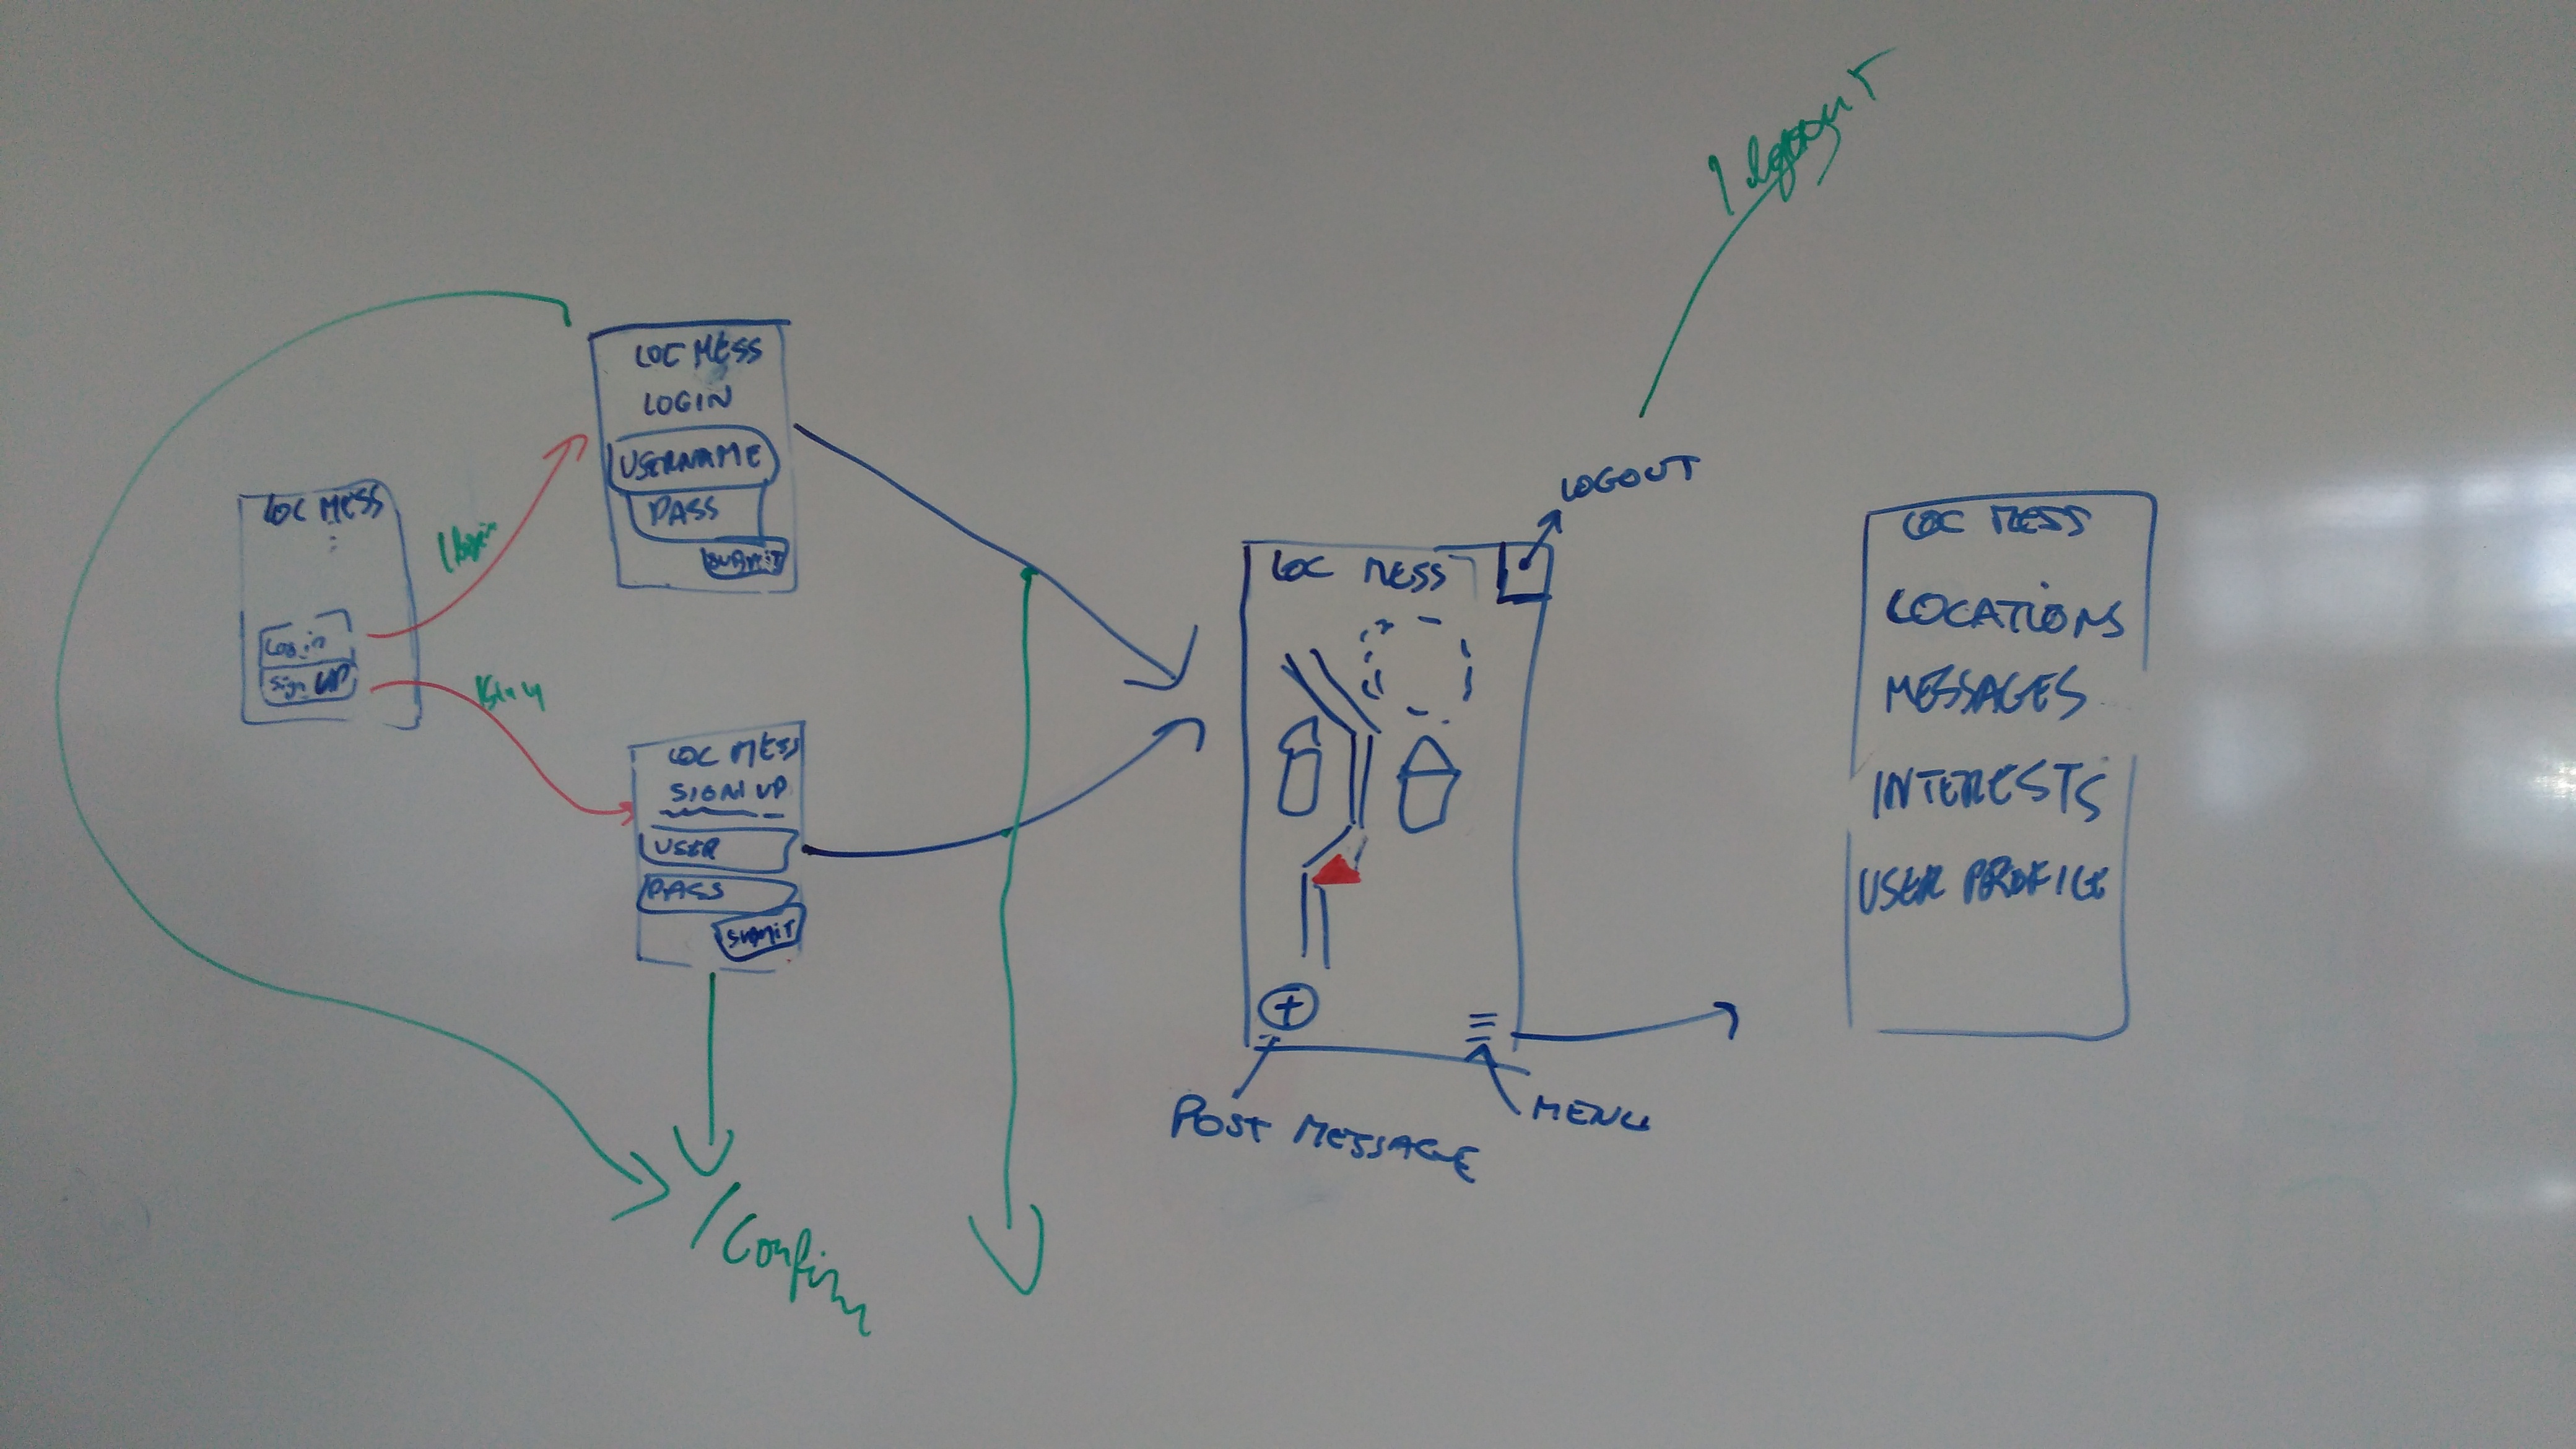 LOC MESS
Log in
Sign UP
/login
LOC MESS
LOGIN
USERNAME
PASS
SUBMIT
LOC MESS
SIGN UP
USER
PASS
SUBMIT
/Confirm
LOC MESS
LOGOUT
/logout
POST MESSAGE
MENU
LOC MESS
LOCATIONS
MESSAGES
INTERESTS
USER PROFILE